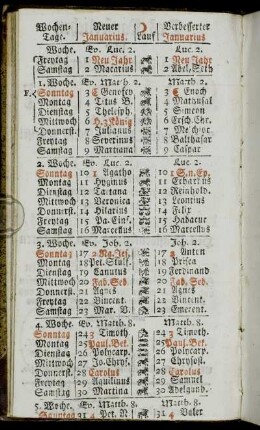 Wochen- Neuer Verbesserter
Tage. Januarius. Lauf Januarius
Woche. Ev. Luc. 2. Luc. 2.
Freytag 1 Neu Jahr 1 Neu Jahr
Samstag 2 Macarius 2 Abel, Seth
1. Woche. Ev. Matth. 2. Matth. 2.
F. Sonntag 3 C Genofev 3 C Enoch
Montag 4 Titus B. 4 Mathusal
Dienstag 5 Thelesph. 5 Simeon
Mittwoch 6 H. 3 König 6 Ersch. Chr.
Donnerst. 7 Julianus 7
Freytag 8 Severinus 8 Balthasar
Samstag 9 Marciana 9 Caspar
2. Woche. Ev. Luc. 2. Luc. 2.
Sonntag 10 1 Agatho 10 1 S. n. Ep.
Montag 11 Hyginus 11
Dienstag 12 Tatiana 12 Reinhold.
Mittwoch 13 Veronica 13 Leontius
Donnerst. 14 Hilarius 14 Felix
Freytag 15 Pa. Einf. 15 Habacuc
Samstag 16 Marcellus 16 Marcellus
3. Woche. Ev. Joh. 2. Joh. 2.
Sonntag 17 2 Na. Jes. 17 2 Anton
Montag 18 Pet. Stulf. 18 Prisca
Dienstag 19 Canutus 19 Ferdinand
Mittwoch 20 Fab. Seb 20 Fab. Seb.
Donnerst. 21 Agnes 21 Agnes
Freytag 22 Vincent. 22 Vincent.
Samstag 23 Mar. V. 23 Emerent.
4. Woche. Ev. Matth. 8. Matth. 8.
Sonntag 24 3 Timoth. 24 3 Timoth.
Montag 25 Paul. Bek. 25 Paul. Bek.
Dienstag 26 Polycarp. 26 Polycarp.
Mittwoch 27 Jo. Chrys. 27 Chrysost.
Donnerst. 28 Carolus 28 Carolus
Freytag 29 Aquilinus 29 Samuel
Samstag 30 Martina 30 Adelgund.
5. Woche. Ev. Matth. 8. Matth. 8.
Sonntag 31 4 Pet. N. 31 4 Valer